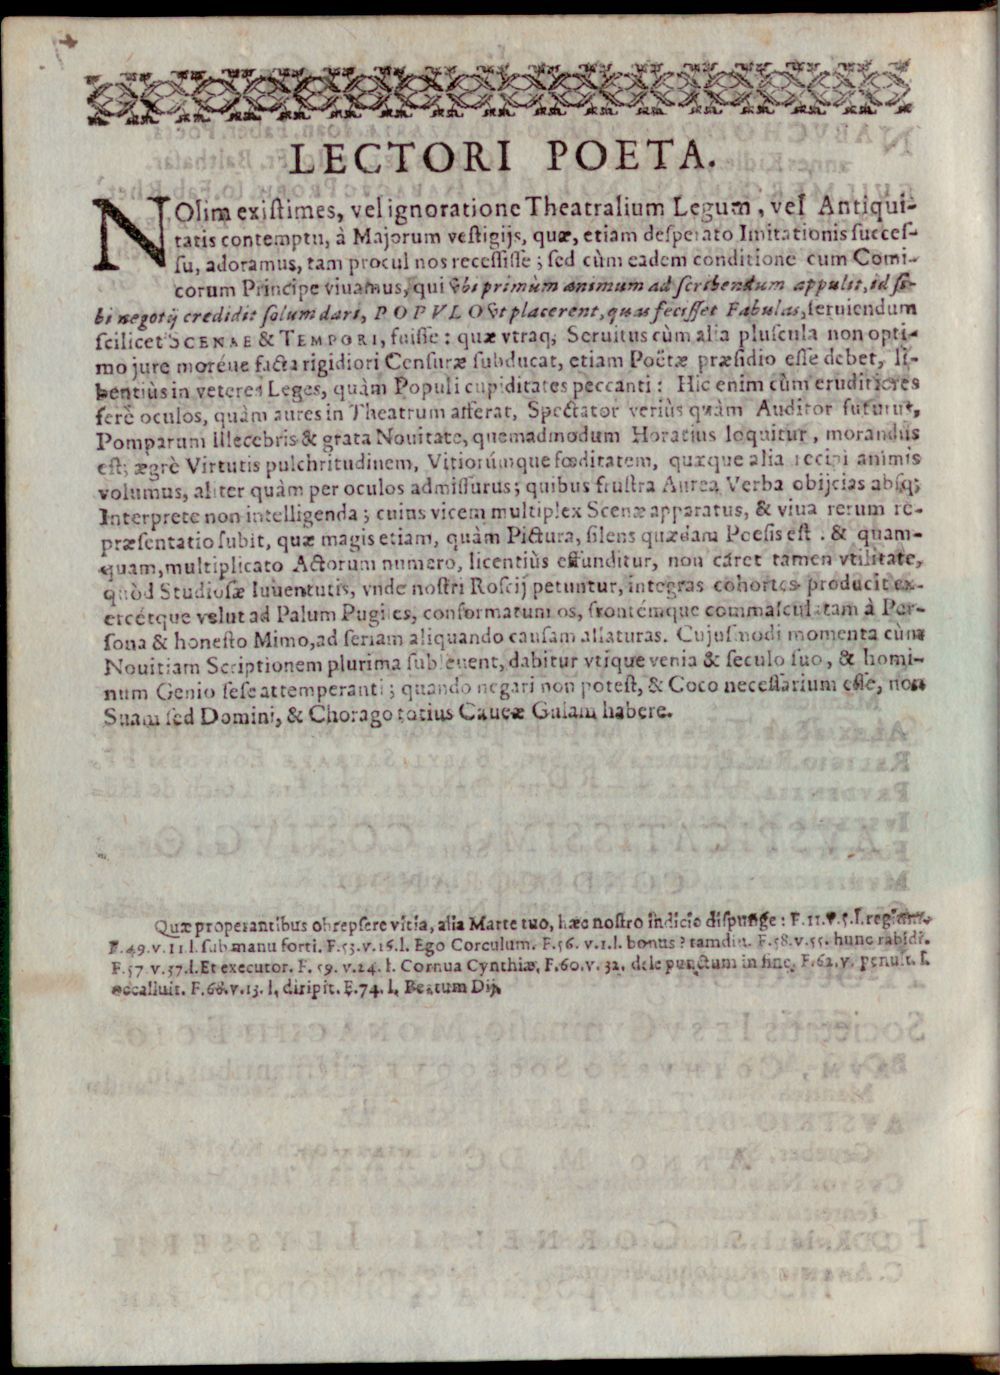 LECTORI POETA.
NOlim existimes, vel ignoratione Theatralium Legum, vel Antiqui-
tatis contemptu, à Majorum vestigijs, quæ, etiam desperato Imitationis succes-
su, adoramus, tam procul nos recessisse; sed cùm eadem conditione cum Comi-
corum Principe viuamus, qui vbi primùm animum ad scribendum appulit, id si-
bi negotij credidit solum dari, POPVLO vt placerent, quas fecisset Fabulas, seruiendum
scilicet SCENAE & TEMPORI, fuisse: quæ vtraq; Seruitus cùm alia pluscula non opti-
mo jure moréue facta rigidiori Censuræ subducat, etiam Poëtæ præsidio esse debet, li-
bentiùs in veteres Leges, quàm Populi cupiditates peccanti: Hic enim cùm eruditiores
ferè oculos, quàm aures in Theatrum afferat, Spectator veriùs quàm Auditor futurus,
Pomparum illecebris & grata Nouitate, quemadmodum Horatius loquitur, morandus
est; ægrè Virtutis pulchritudinem, Vitiorúmque fœditatem, quæque alia recipi animis
volumus, aliter quàm per oculos admissurus; quibus frustra Aurea Verba obijcias absq;
Interprete non intelligenda; cuius vicem multiplex Scenæ apparatus, & viua rerum re-
præsentatio subit, quæ magis etiam, quàm Pictura, silens quædam Poesis est. & quam-
quam, multiplicato Actorum numero, licentiùs effunditur, non caret tamen vtilitate,
quòd Studiosæ Iuuentutis, vnde nostri Roscij petuntur, integras cohortes producit ex-
ercétque velut ad Palum Pugiles, conformatum os, frontémque commasculatam à Per-
sona & honesto Mimo, ad seriam aliquando causam allaturas. Cujusmodi momenta cùm
Nouitiam Scriptionem plurima subleuent, dabitur vtique venia & seculo suo, & homi-
num Genio sese attemperanti; quando negari non potest, & Coco necessarium esse, non
Suam sed Domini, & Chorago totius Caueæ Gulam habere.
Quæ properantibus obrepsere vitia, alia Marte tuo, hæc nostro indicio dispunge: F.11.v.5.l.
F.49.v.11 l. sub manu forti. F.53.v.16.l. Ego Corculum. F.56. v.1.l. bonus? tamdiu. F.58.v.55. hunc
F.57 v.57.l.Et executor. F. 59. v.24. l. Cornua Cynthiæ. F.60.v. 32. dele punctum in fine. F.62.v. penult. l.
occalluit. F.68.v.13. l, diripit. F.74. l. Beatum Dij.